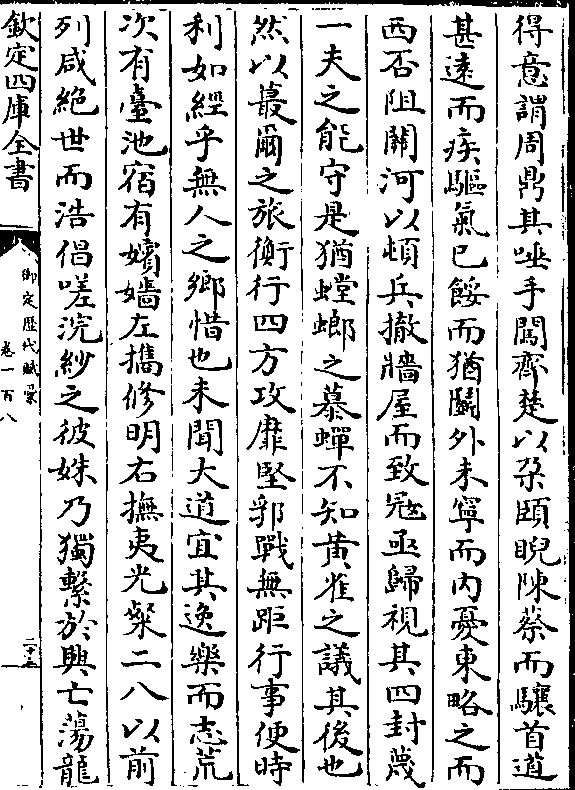 得意謂周鼎其唾手闖齊楚以朶頤睨陳蔡而驤首道
甚遠而疾驅氣已餒而猶鬭外未寧而內憂東略之而
西否阻關河以頓兵撤牆屋而致冦亟歸視其四封蔑
一夫之能守是猶螳螂之慕蟬不知黄雀之議其後也
然以蕞爾之旅衡行四方攻靡堅郛戰無距行事便時
利如經乎無人之鄉惜也未聞大道宜其逸樂而志荒
次有臺池宿有嬪嬙左攜修明右撫夷光粲二八以前
列咸絶世而浩倡嗟浣紗之彼姝乃獨繫於興亡蕩龍
欽定四庫全書
御定歴代賦彚
卷一百八
二十五